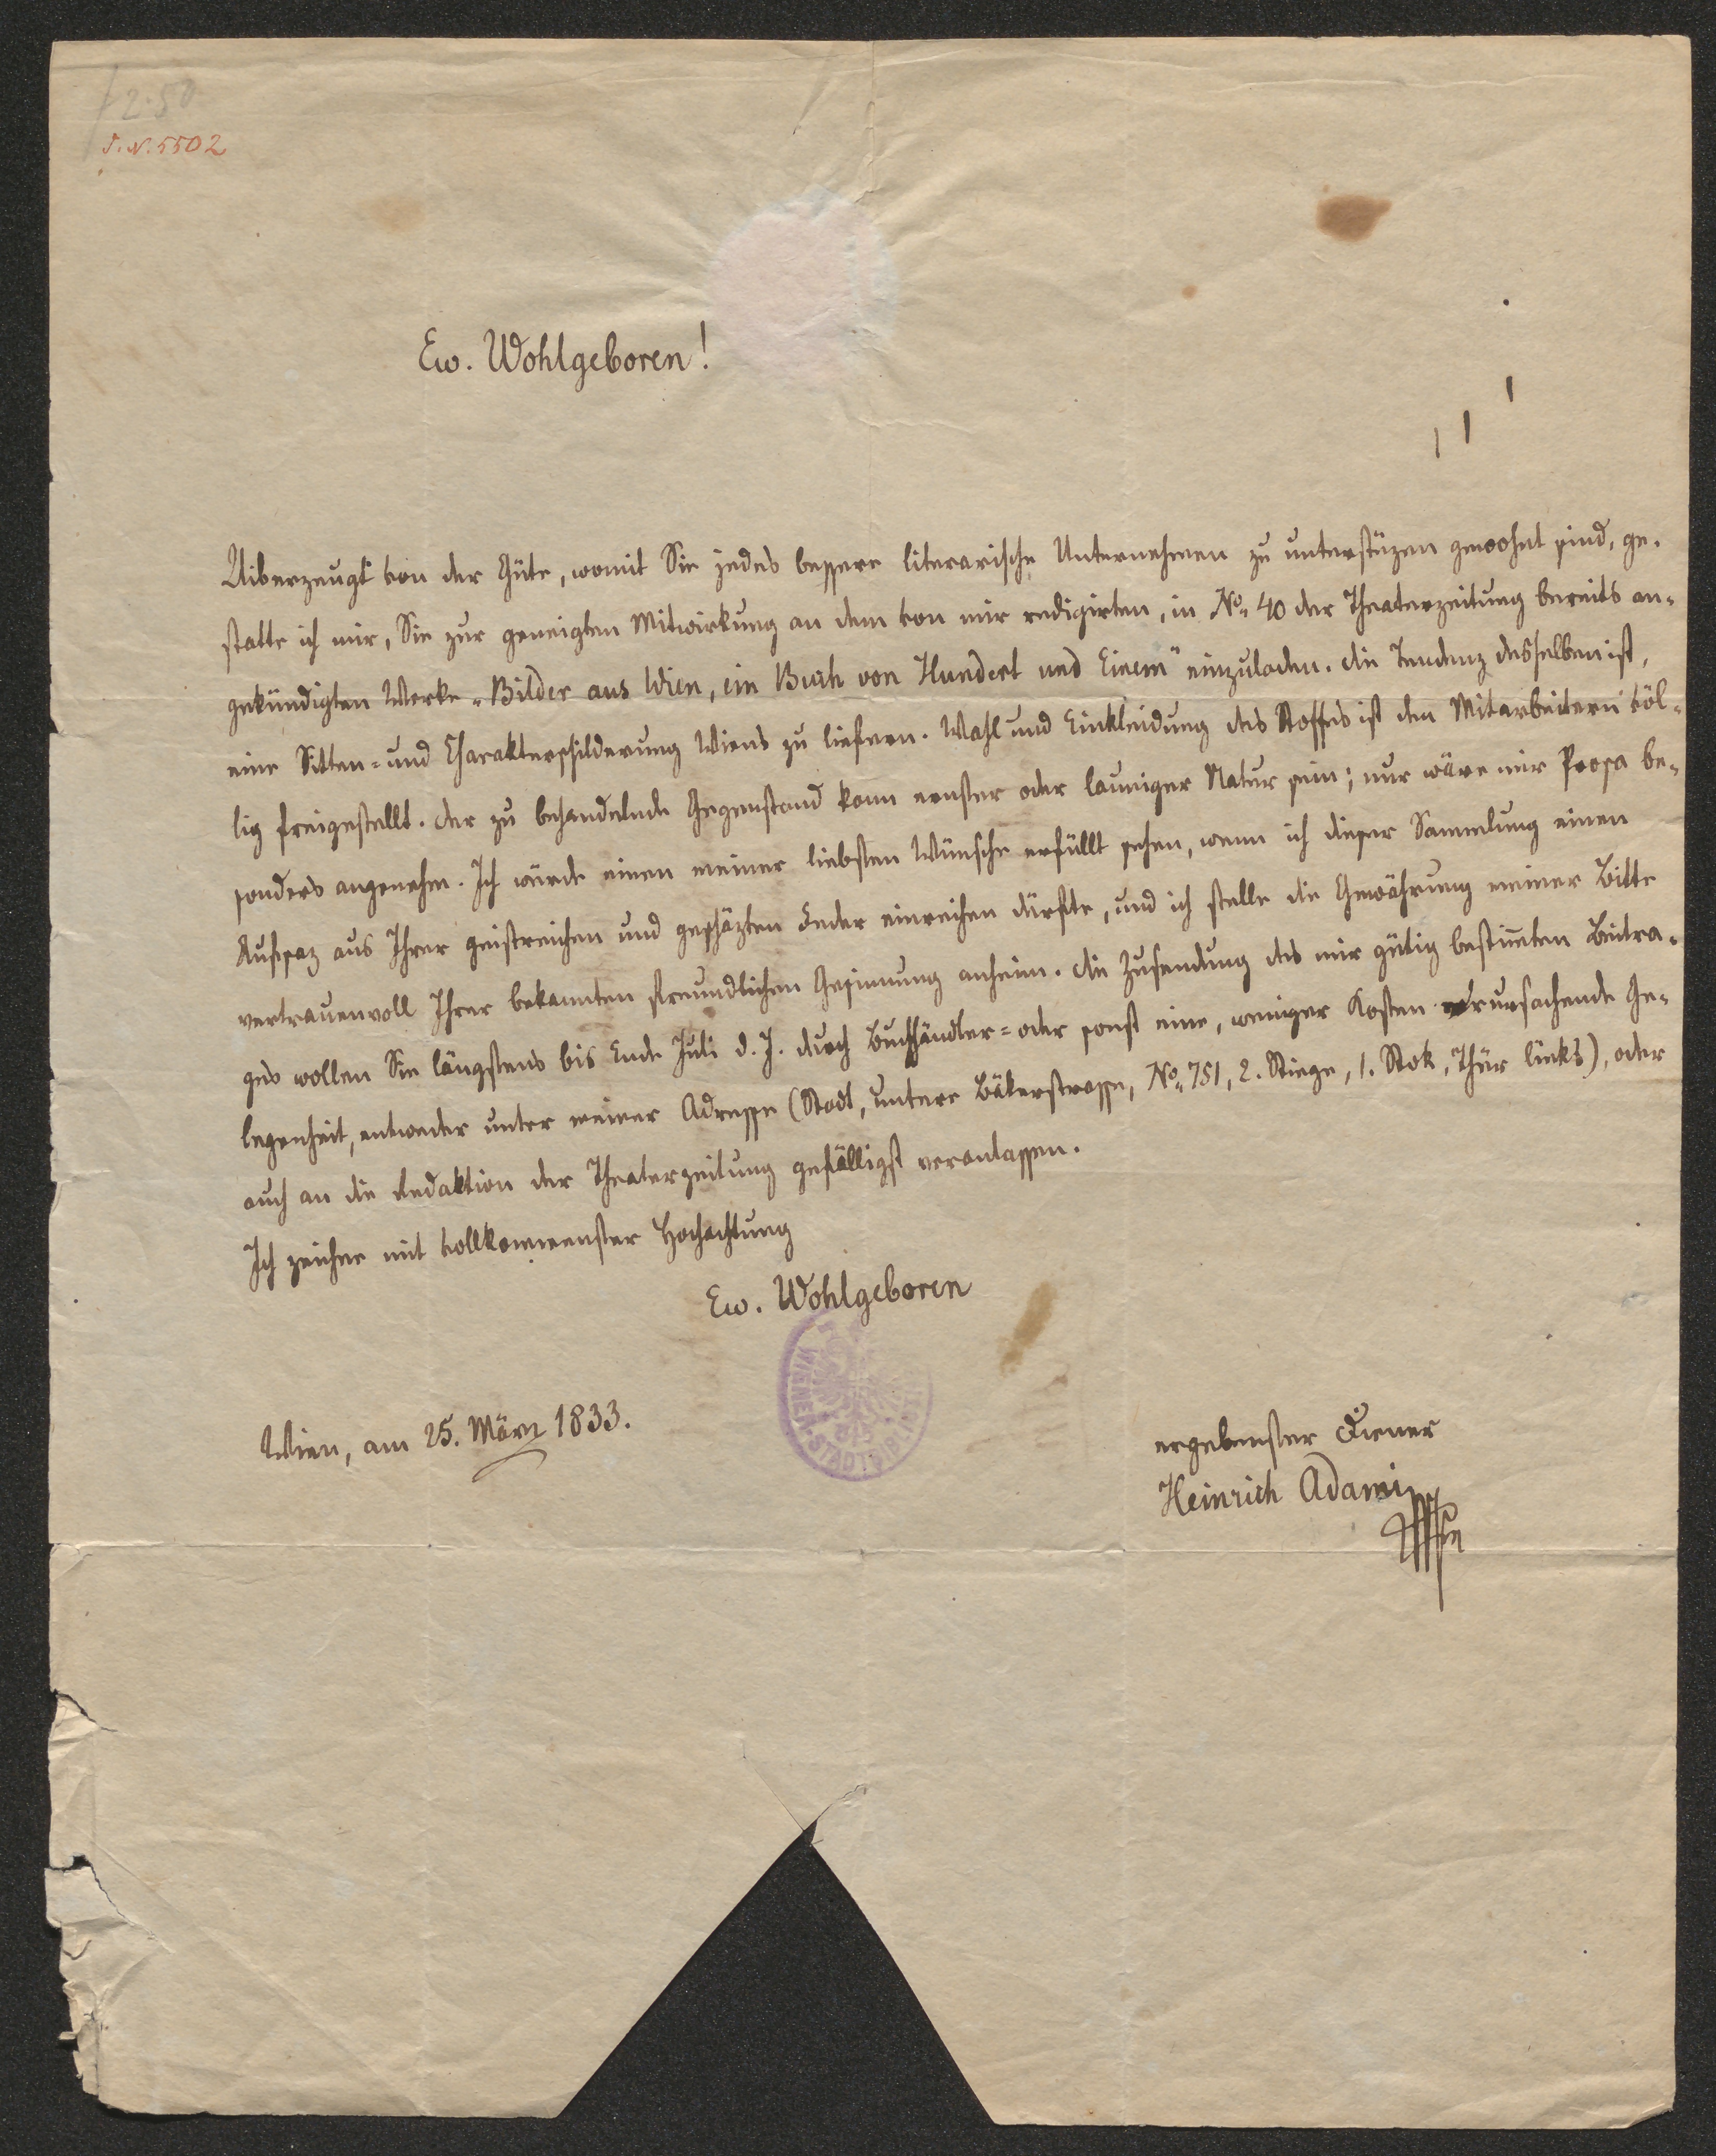 2.50
J.N.5502
Ew. Wohlgeboren!
Uiberzeugt von der Güte, womit Sie jedes bessere literarische Unternehmen zu unterstüzen gewohnt sind, ge-
statte ich mir, Sie zur geneigten Mitwirkung an dem von mir redigirten, in No. 40 der Theaterzeitung bereits an-
gekündigten Werke „Bilder aus Wien, ein Buch von Hundert und Einem" einzuladen. Die Tendenz desselben ist,
eine Sitten- und Charakterschilderung Wiens zu liefern. Wahl und Einkleidung des Stoffes ist den Mitarbeitern völ-
lig freigestellt. Der zu behandelnde Gegenstand kann ernster oder launiger Natur sein; nur wäre mir Prosa be-
sonders angenehm. Ich würde einen meiner liebsten Wünsche erfüllt sehen, wenn ich dieser Sammlung einen
Aufsaz aus Ihrer geistreichen und geschäzten Feder einreihen dürfte, und ich stelle die Gewährung meiner Bitte
vertrauenvoll Ihrer bekannten freundlichen Gesinnung anheim. Die Zusendung des mir gütig bestimten Beitra-
ges wollen Sie längstens bis Ende Juli d. J. durch Buchhändler- oder sonst eine, weniger Kosten verursachende Ge-
legenheit, entweder unter meiner Adresse (Stadt, untere Bäkerstrasse, No. 751, 2. Stiege, 1. Stok, Thür links), oder
auch an die Redaktion der Theaterzeitung gefälligst veranlassen.
Ich zeichne mit vollkommenster Hochachtung
Ew. Wohlgeboren
WIENER STADTBIBLIOTHEK
Wien, am 25. März 1833.
ergebenster Diener
Heinrich Adami